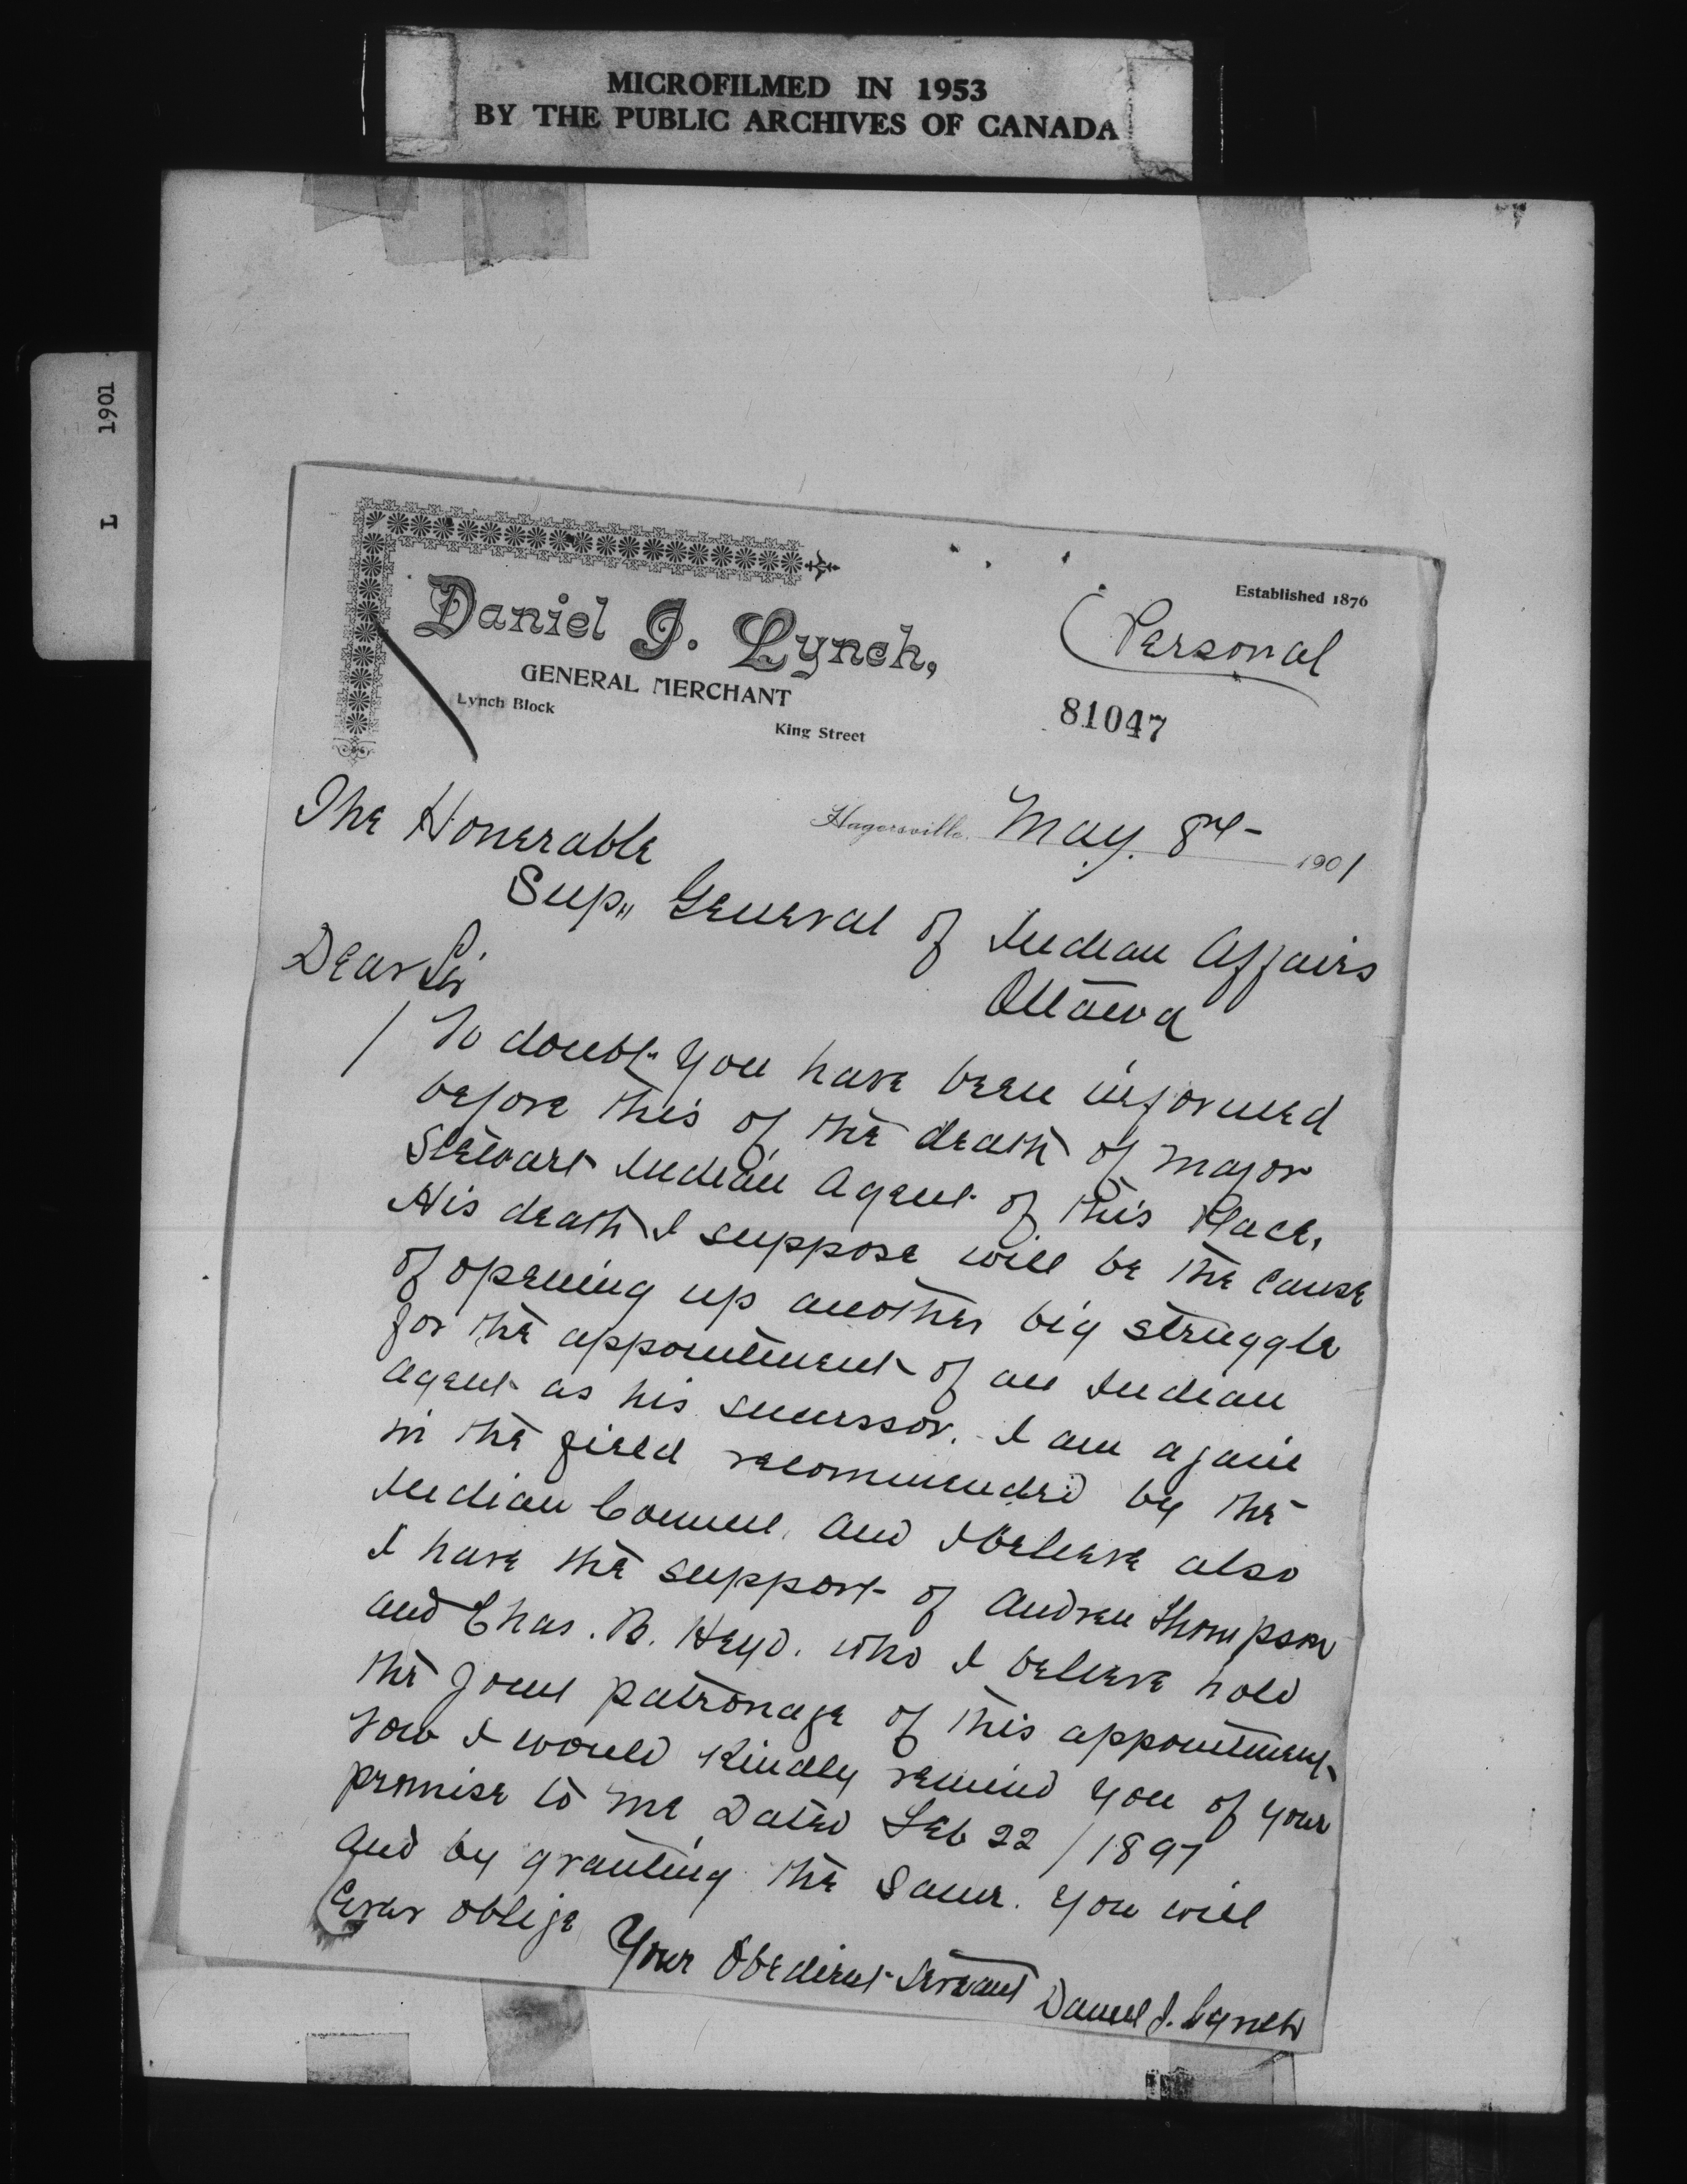 MICROFILMED IN 1953
BY THE PUBLIC ARCHIVES OF CANADA
L 1901
Established 1876
Daniel J. Lynch,
(Personal
GENERAL MERCHANT
Lynch Block
King Street
81047
Hagersville, May. 8 1901
The Honerable
Sup" General of Indian Affairs
Ottawa
Dear Sir
No doubt you have been informed
before this of the death of Major
Stewart Indian Agent of this Place.
His death I suppose will be the cause
of opening up another big struggle
for the appointment of an Indian
Agent as his sucessor. I am again
in the field recommended by the
Indian Council, and I beleive also
I have the support of Andrew Thompson
and Chas. B. Heyd. who I beleive hold
the joint patronage of this appointment
Now I would Kindly remind you of your
promise to me Dated Feb 22 / 1897
and by granting the same. you will
Ever oblige
Your Obedient Servant Daniel J. Lynch